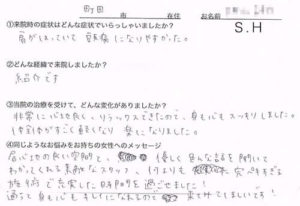 町田
市 在住 お名前
S.H
①来院時の症状はどんな症状でいらっしゃいましたか？
肩がはっていて 頭痛になりやすかった。
②どんな経緯で来院しましたか？
紹介です
③当院の治療を受けて、どんな変化がありましたか？
非常に心地良く、リラックスできたので、身も心もスッキリしました。
体全体がすごく軽くなり 楽になりました。
④同じようなお悩みをお持ちの女性へのメッセージ
居心地の良い空間と、 優しく色んな話を聞いて
わかってくれる素敵なスタッフ、何よりも 完ぺきすぎる
施術で充実した時間を過ごせました！
通うと身も心もキレイになれるので 来てほしいです！